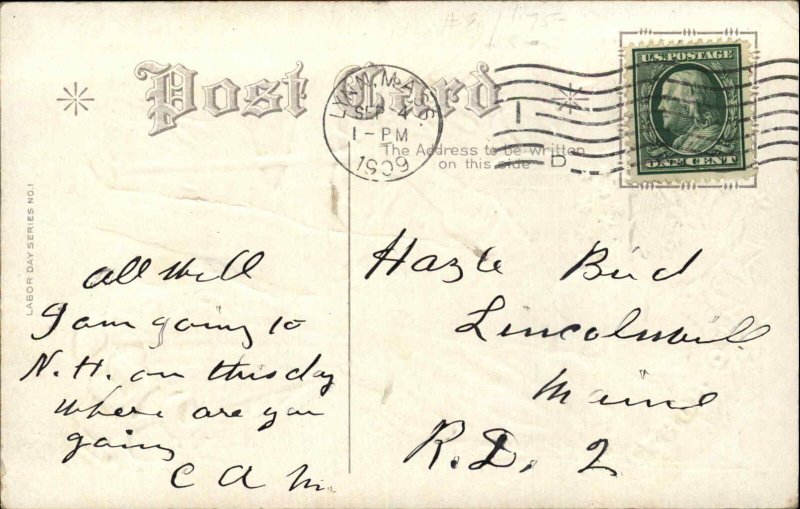 Post Card
LYNN, MASS.
SEP 4
1-PM
1909
1
D
U.S. POSTAGE
ONE CENT
The Address to be written
on this side
LABOR DAY SERIES NO. 1
all well
I am going to
N. H. on this day
where are you
going
C A M
Hazle Bird
Lincolnvill
Maine
R. D. 2